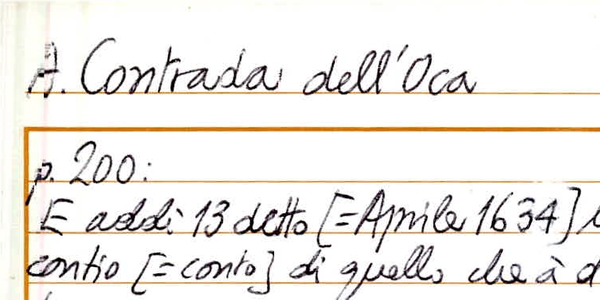 A. Contrada dell'Oca
p. 200:
E addì 13 detto [=Aprile 1634]
contio [=conto] di quello che à d